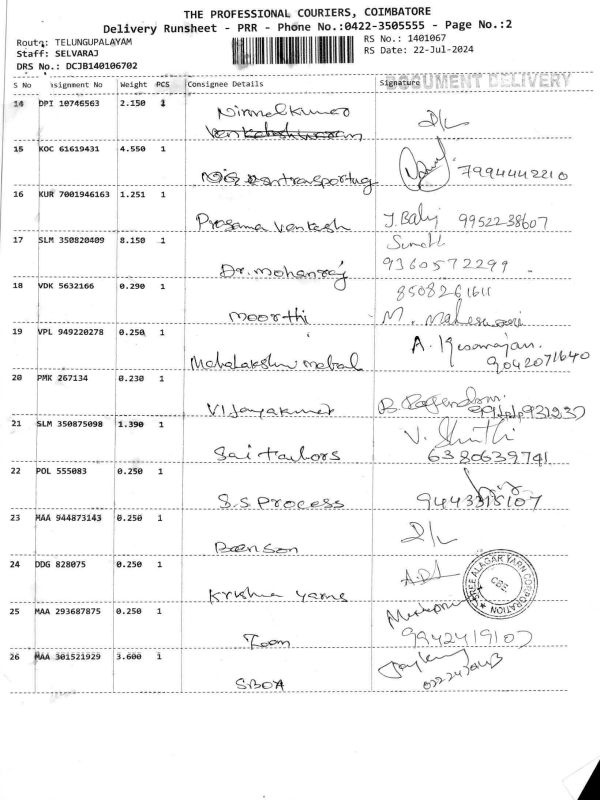 THE PROFESSIONAL COURIERS, COIMBATORE
Delivery Runsheet - PRR - Phone No.:0422-3505555 - Page No.:2
Route: TELUNGUPALAYAM
RS No.: 1401067
Staff: SELVARAJ
RS Date: 22-Jul-2024
DRS No.: DCJB140106702
S No signment No Weight PCS Consignee Details Signature DOCUMENT DELIVERY
14 DPI 10746563 2.150 1 Nirmalkumar D/L
15 KOC 61619431 4.550 1 7994442210
16 KUR 7001946163 1.251 1 Prasanna Venkatesh J. Balaji 9952238607
17 SLM 350820409 8.150 1 Dr. mohanraj
9360572299
18 VDK 5632166 0.290 1 moorthi 8508261611
M. Maheswari
19 VPL 949220278 0.250 1 Mahalakshmi mahal A.
9042071640
20 PMK 267134 0.230 1 Vijayakumar B. Rajendran
21 SLM 350875098 1.390 1 Sai tailors V. Shruthi
6380639741
22 POL 555083 0.250 1 S.S Process 9443318107
23 MAA 944873143 0.250 1 Benson D/L
24 DDG 828075 0.250 1 Krishna yarns SREE ALAGAR YARN CORPORATION CBE
25 MAA 293687875 0.250 1 9942419107
26 MAA 301521929 3.600 1 SBOA